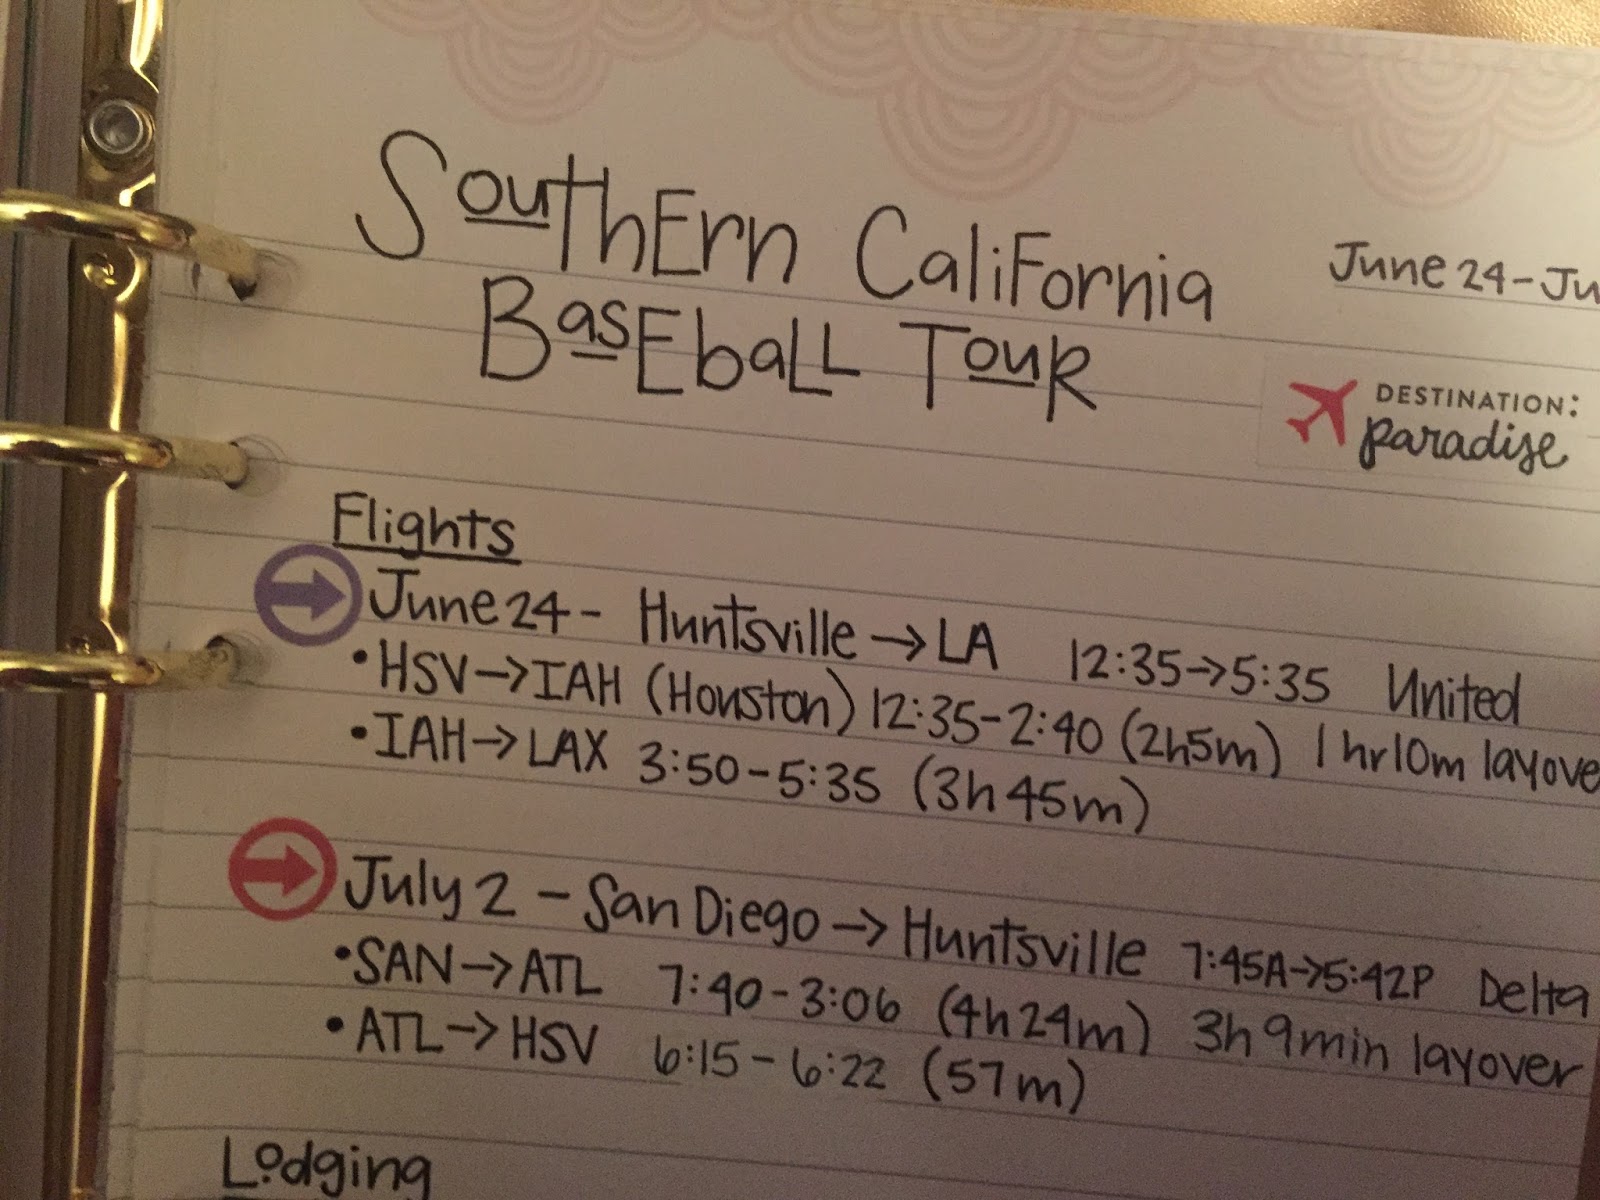 Southern California
Baseball Tour
June 24-Ju
DESTINATION:
paradise
Flights
June 24 - Huntsville → LA 12:35→5:35 United
•HSV→IAH (Houston) 12:35-2:40 (2h5m) 1 hr 10m layove
•IAH→LAX 3:50-5:35 (3h 45m)
July 2 - San Diego → Huntsville 7:45A→5:42P Delta
•SAN→ATL 7:40-3:06 (4h24m) 3h 9min layover
•ATL→HSV 6:15-6:22 (57m)
Lodging